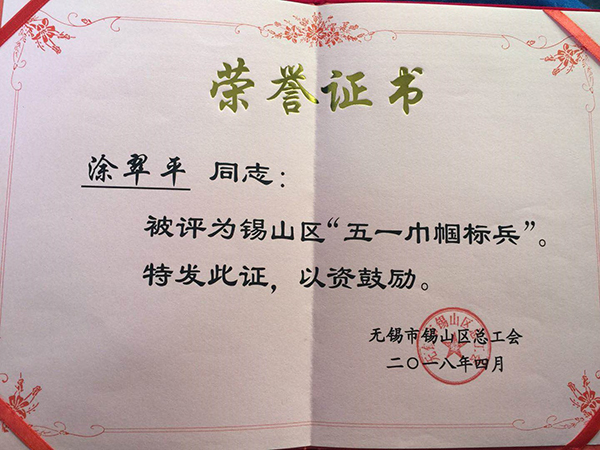 荣誉证书
涂翠平 同志：
被评为锡山区“五一巾帼标兵”。
特发此证，以资鼓励。
无锡市锡山区总工会
二〇一八年四月